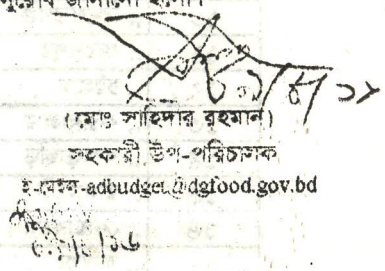 অনুরোধ জানানো হলো।
(মোঃ সাহিদার রহমান)
সহকারী উপ-পরিচালক
ই-মেইল-adbudget@dgfood.gov.bd